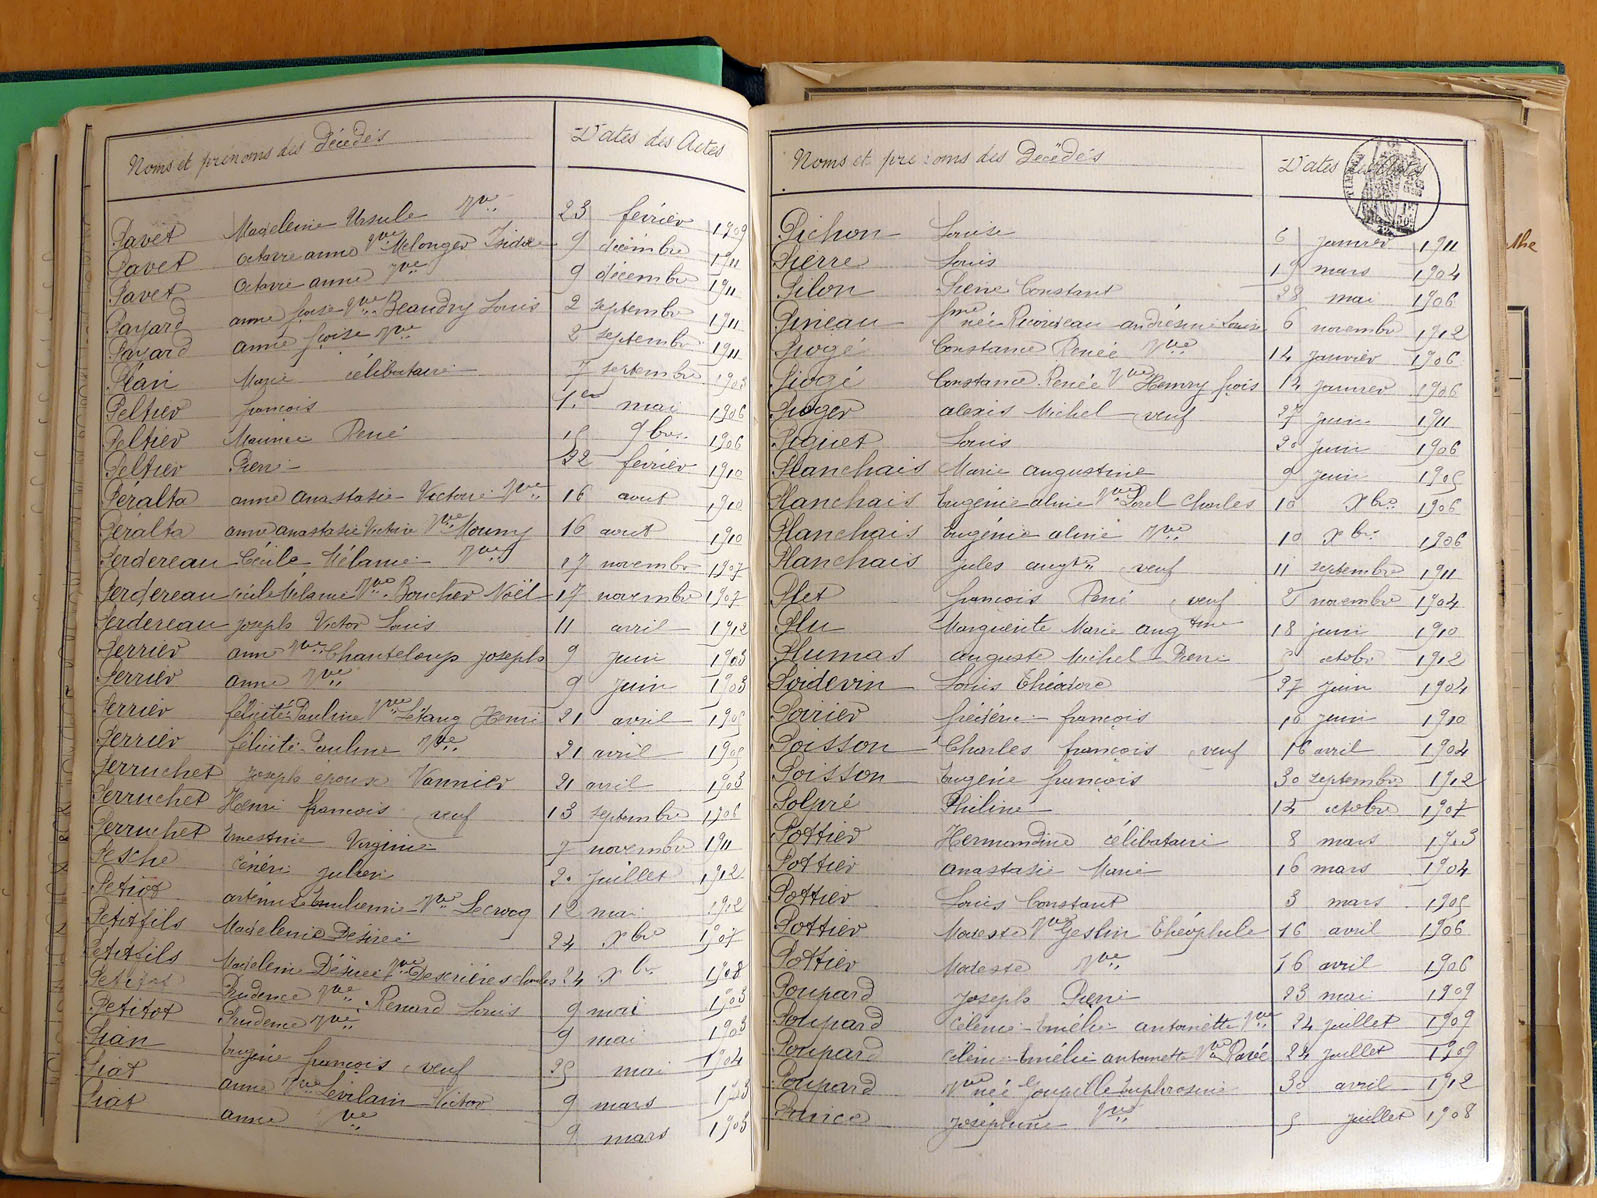 Noms et prénoms des Décédés Dates des Actes
Pavet Madeleine Ursule Vve 23 février 1909
Pavet octavie anne Vve Melonger Isidore 9 décembre 1911
Pavet octavie anne Vve 9 décembre 1911
Payard anne foise Vve Beaudry Louis 2 septembre 1911
Payard anne foise Vve 2 septembre 1911
Péan Marie célibataire 7 septembre 1903
Peltier françois 1er mai 1906
Peltier Maurice René 15 9bre 1906
Peltier René 22 février 1910
Péralta anne anastasie Victoire Vve 16 aout 1910
Peralta anne anastasie Victoire Vve Mouny 16 aout 1910
Perdereau Cécile Mélanie Vve 17 novembre 1907
Perdereau Cécile Mélanie Vve Boucher Noël 17 novembre 1907
Perdereau Joseph Victor Louis 11 avril 1912
Perrier anne Vve Chanteloup Joseph 9 juin 1903
Perrier anne Vve 9 juin 1903
Perrier félicité Pauline Vve Létang Henri 21 avril 1905
Perrier félicité Pauline Vve 21 avril 1905
Perruchet Joseph époux Vannier 21 avril 1903
Perruchet Henri françois veuf 13 septembre 1906
Perruchet Ernestine Virginie 7 novembre 1911
Pesche Julien 20 juillet 1912
Petiot Vve Lecocq 12 mai 1912
Petitfils Madeleine Désirée 24 Xbre 1907
Petitfils Madeleine Désirée Vve Desrières Charles 24 Xbre 1908
Petitot Prudence Vve Renard Louis 9 mai 1903
Petitot Prudence Vve 9 mai 1903
Pian Eugène françois veuf 25 mai 1904
Piat anne Vve Levilain Victor 9 mars 1903
Piat anne Vve 9 mars 1903
Noms et prénoms des Décédés Dates des Actes
Pichon Louise 6 janvier 1911
Pierre Louis 19 mars 1904
Pilon Pierre Constant 28 mai 1906
Pineau fme née Ricordeau andrésine Louise 6 novembre 1912
Piogé Constance Renée Vve 14 janvier 1906
Piogé Constance Renée Vve Hemry fçois 14 janvier 1906
Pioger alexis Michel veuf 27 juin 1911
Piquet Louis 20 juin 1906
Planchais Marie augustine 9 juin 1905
Planchais Eugénie aline Vve Sorel Charles 10 Xbre 1906
Planchais Eugénie aline Vve 10 Xbre 1906
Planchais Jules augtn veuf 11 septembre 1911
Plet françois René veuf 2 novembre 1904
Plu Marguerite Marie augtine 18 juin 1910
Plumas auguste Michel René 5 octobre 1912
Poidevin Louis Théodore 27 juin 1904
Poirier frédéric françois 16 juin 1910
Poisson Charles françois veuf 16 avril 1904
Poisson Eugénie françois 30 septembre 1912
Polpré Philine 14 octobre 1907
Pottier Hermandine célibataire 8 mars 1903
Pottier anastasie Marie 16 mars 1904
Pottier Louis Constant 3 mars 1905
Pottier Modeste Vve Geslin Théophile 16 avril 1906
Pottier Modeste Vve 16 avril 1906
Poupard Joseph René 23 mai 1909
Poupard Célénie Emélie antoinette Vve 24 juillet 1909
Poupard Célénie Emélie antoinette Vve Parée 24 juillet 1909
Poupard Vve née Goupil Euphrosine 30 avril 1912
Prince Joséphine Vve 5 juillet 1908